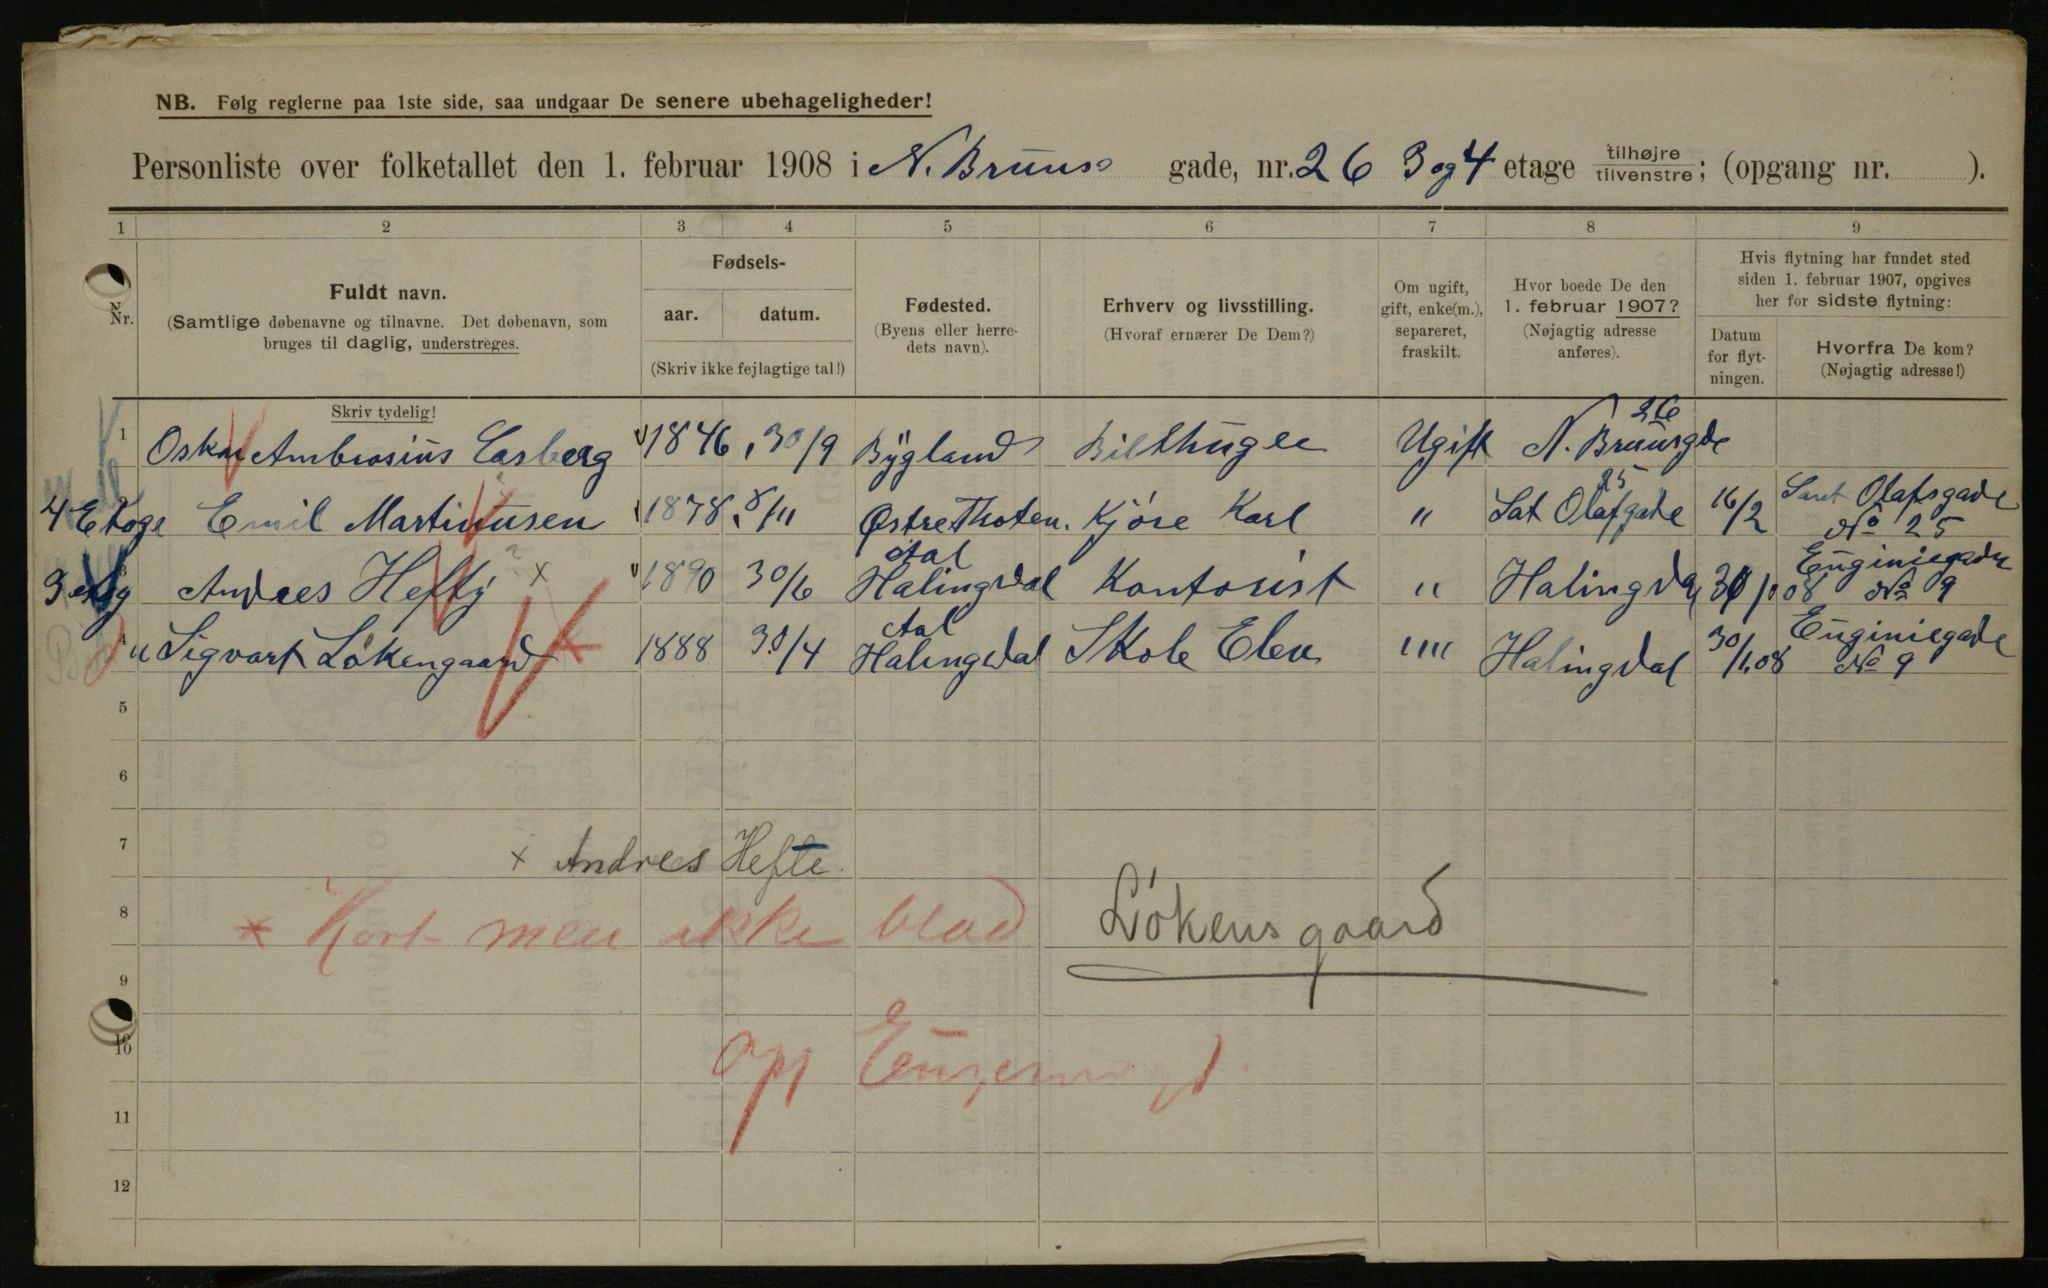 NB. Følg reglerne paa 1ste side, saa undgaar De senere ubehageligheder!
Personliste over folketallet den 1. februar 1908 i N. Bruus gade, nr. 26 3 og 4 etage tilhøjre tilvenstre; (opgang nr. ).
1 2 3 4 5 6 7 8 9
Nr.
Fuldt navn.
(Samtlige døbenavne og tilnavne. Det døbenavn, som
bruges til daglig, understreges.
Skriv tydelig!
Fødsels-
aar. datum.
(Skriv ikke fejlagtige tal!)
Fødested.
(Byens eller herre-
dets navn).
Erhverv og livsstilling.
(Hvoraf ernærer De Dem?)
Om ugift,
gift, enke(m.),
separeret,
fraskilt.
Hvor boede De den
1. februar 1907?
(Nøjagtig adresse
anføres).
Hvis flytning har fundet sted
siden 1. februar 1907, opgives
her for sidste flytning:
Datum
for flyt-
ningen.
Hvorfra De kom?
(Nøjagtig adresse!)
1 Oskar Ambrosius Casberg 1846 30/9 Bÿgland Bilthuger Ugift N. Bruusgde 26
4 Etage Emil Martinusen 1878 8/11 Østre Thoten. Kjöre Karl " Sat Olafgade 25 16/2 Sanct Olafsgade No 25
3 etg Andres Hefty x 1890 30/6 Aal Halingdal Kontorist " Halingdal 30/1 08 Euginiegade No 9
4 " Sigvart Løkengaard 1888 30/4 Aal Halingdal Skole Elev "" Halingdal 30/1.08 Euginiegade No 9
5
6
7 x Andres Hefte.
8 x Kort men ikke blad Løkensgaard
9
10
11
12